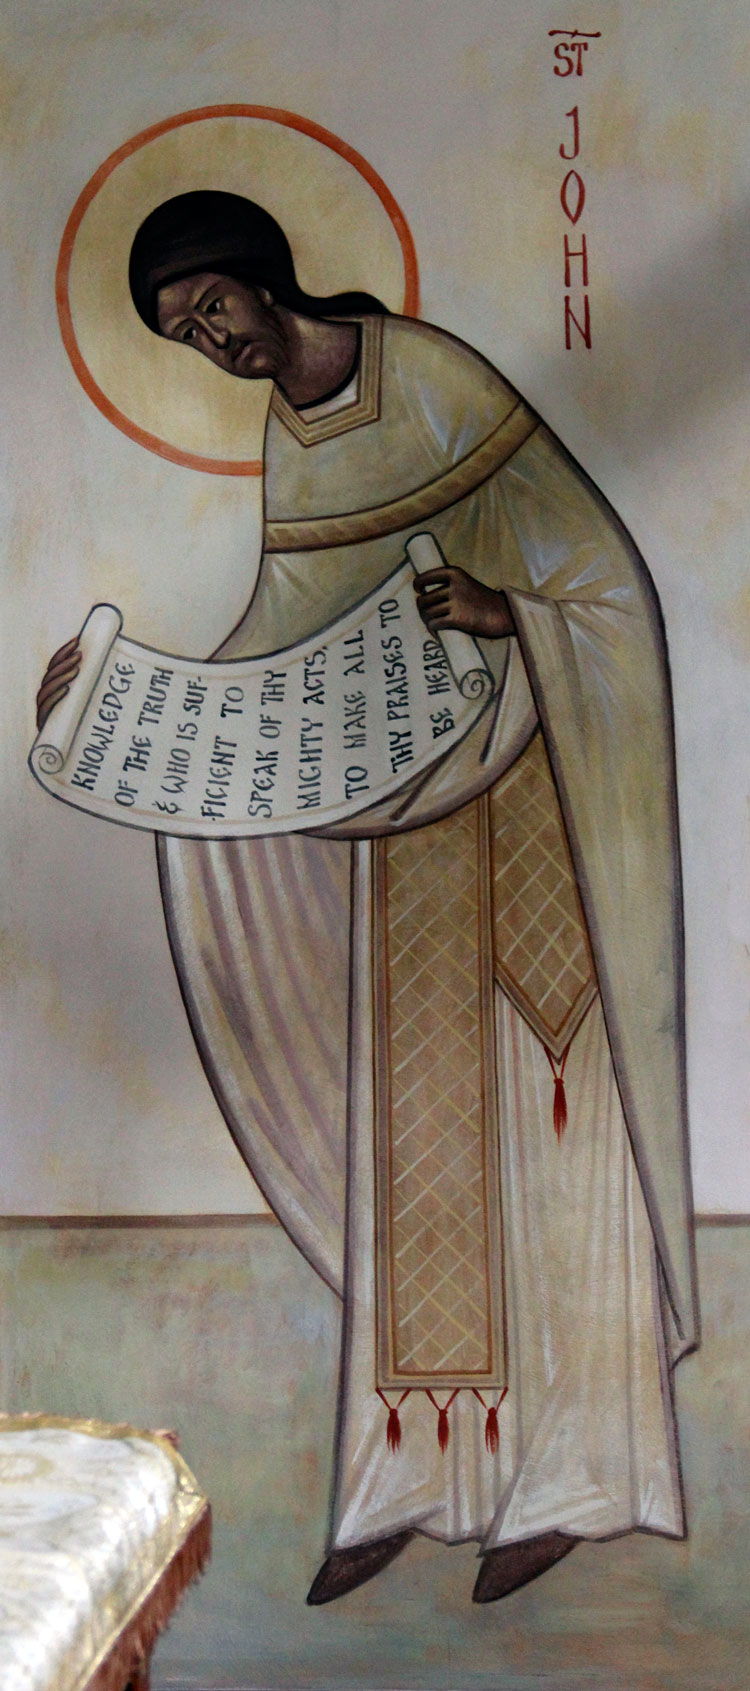 ST
JOHN
KNOWLEDGE
OF THE TRUTH
& WHO IS SUF-
FICIENT TO
SPEAK OF THY
MIGHTY ACTS,
TO MAKE ALL
THY PRAISES TO
BE HEARD